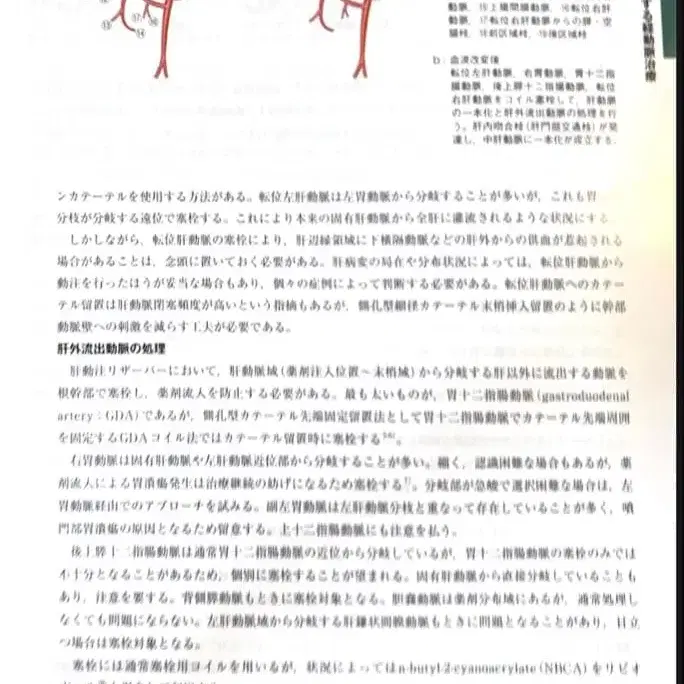 動脈, 15上腸間膜動脈, 16転位右肝
動脈, 17転位右肝動脈からの膵・空
腸枝, 18前区域枝, 19後区域枝
する経動脈治療
b：血流改変後
転位左肝動脈，右胃動脈，胃十二指
腸動脈，後上膵十二指腸動脈，転位
右肝動脈をコイル塞栓して，肝動脈
の一本化と肝外流出動脈の処理を行
う。肝内吻合枝（肝門部交通枝）が発
達し，中肝動脈に一本化が成立する。
ンカテーテルを使用する方法がある。転位左肝動脈は左胃動脈から分岐することが多いが，これも胃
分枝が分岐する遠位で塞栓する。これにより本来の固有肝動脈から全肝に灌流されるような状況にする
しかしながら，転位肝動脈の塞栓により，肝辺縁領域に下横隔動脈などの肝外からの供血が惹起される
場合があることは，念頭に置いておく必要がある。肝病変の局在や分布状況によっては，転位肝動脈から
動注を行ったほうが妥当な場合もあり，個々の症例によって判断する必要がある。転位肝動脈へのカテー
テル留置は肝動脈閉塞頻度が高いという指摘もあるが，側孔型細径カテーテル末梢挿入留置のように幹部
動脈壁への刺激を減らす工夫が必要である。
肝外流出動脈の処理
肝動注リザーバーにおいて，肝動脈域（薬剤注入位置〜末梢域）から分岐する肝以外に流出する動脈を
根幹部で塞栓し，薬剤流入を防止する必要がある。最も太いものが，胃十二指腸動脈（gastroduodenal
artery：GDA）であるが，側孔型カテーテル先端固定留置法として胃十二指腸動脈でカテーテル先端周囲
を固定するGDAコイル法ではカテーテル留置時に塞栓する。
右胃動脈は固有肝動脈や左肝動脈近位部から分岐することが多い。細く，認識困難な場合もあるが，薬
剤流入による胃潰瘍発生は治療継続の妨げになるため塞栓する。分岐部が急峻で選択困難な場合は，左
胃動脈経由でのアプローチを試みる。副左胃動脈は左肝動脈分枝と重なって存在していることが多く，噴
門部胃潰瘍の原因となるため留意する。上十二指腸動脈にも注意を払う。
後上膵十二指腸動脈は通常胃十二指腸動脈の近位から分岐しているが，胃十二指腸動脈の塞栓のみでは
不十分となることがあるため，個別に塞栓することが望まれる。固有肝動脈から直接分岐していることも
あり，注意を要する。背側膵動脈もときに塞栓対象となる。胆嚢動脈は薬剤分布域にあるが，通常処理し
なくても問題にならない。左肝動脈域から分岐する肝鎌状間膜動脈もときに問題となることがあり，目立
つ場合は塞栓対象となる。
塞栓には通常塞栓用コイルを用いるが，状況によってはn-butyl-2-cyanoacrylate（NBCA）をリピオ